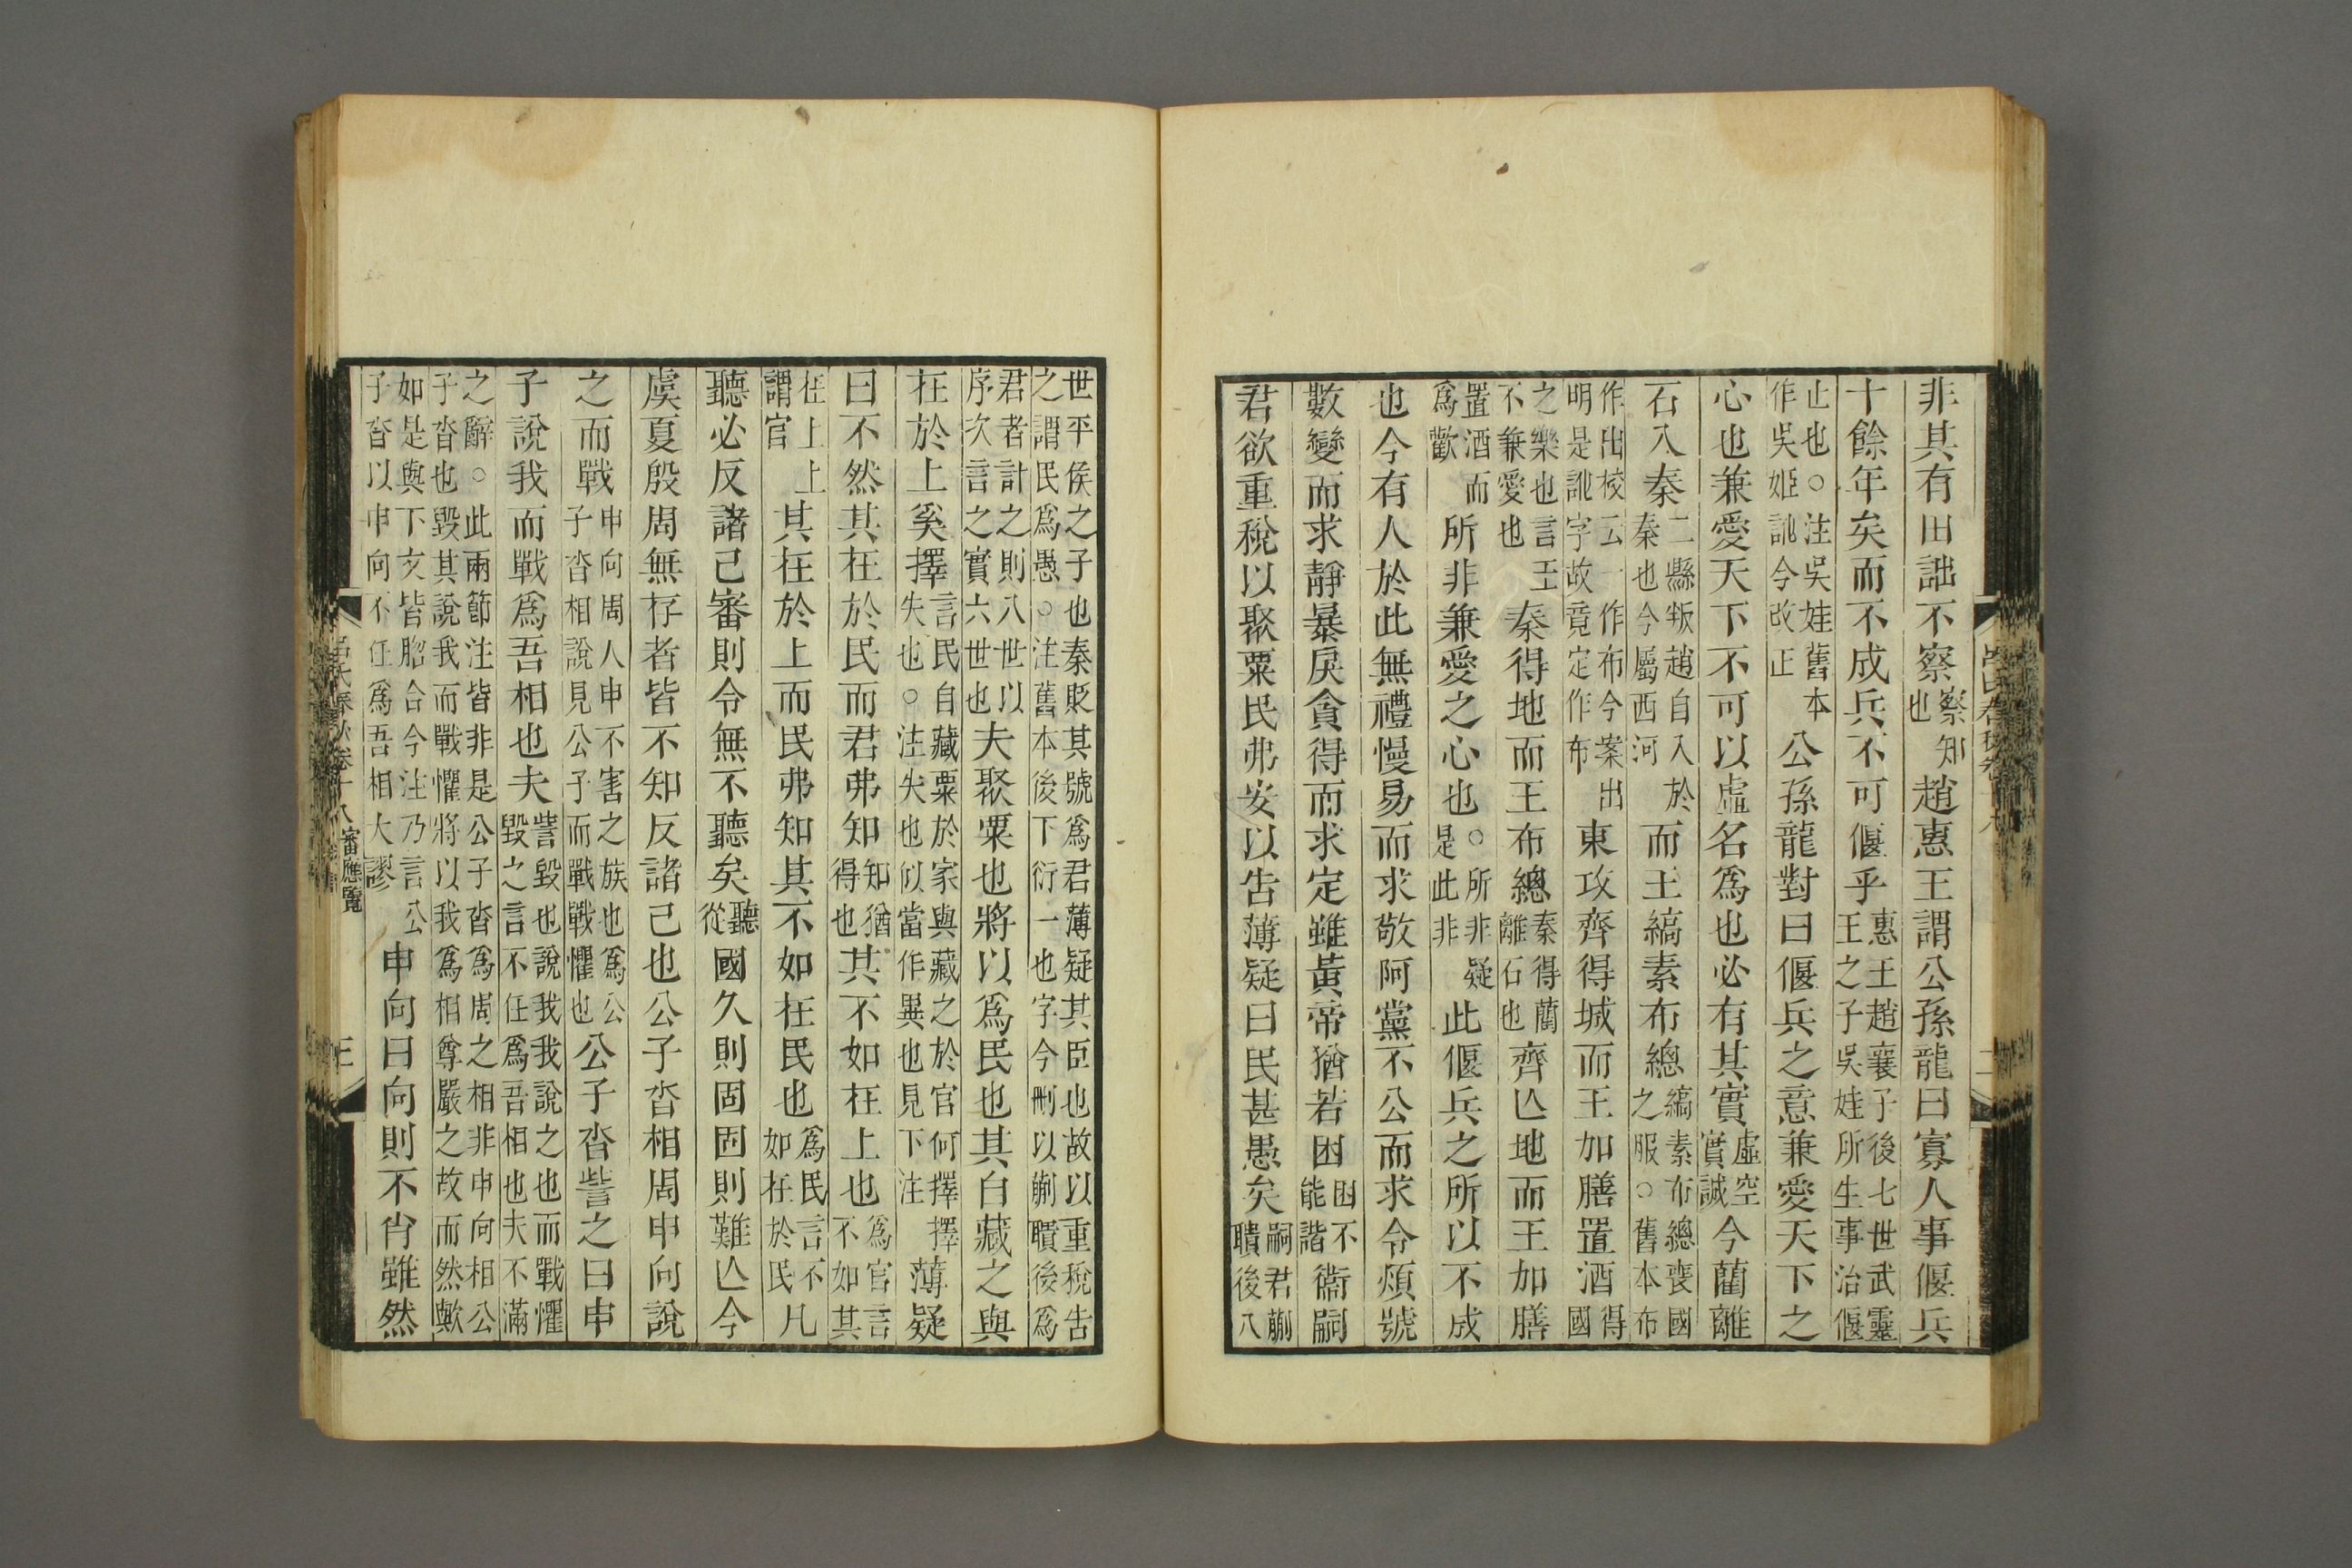 呂氏春秋卷十八 二
非其有田詘不察察知也趙惠王謂公孫龍曰寡人事偃兵
十餘年矣而不成兵不可偃乎惠王趙襄子後七世武靈王之子吳娃所生事治偃
止也○注吳娃舊本作吳姬訛今改正公孫龍對曰偃兵之意兼愛天下之
心也兼愛天下不可以虛名爲也必有其實虛空實誠今藺離
石入秦二縣叛趙自入於秦也今屬西河而王縞素布總縞素布總喪國之服○舊本布
作出校云一作布今案出明是訛字故竟定作布東攻齊得城而王加膳置酒得國
之樂也言王不兼愛也秦得地而王布總秦得藺離石也齊亾地而王加膳
置酒而爲歡所非兼愛之心也○所非疑是此非此偃兵之所以不成
也今有人於此無禮慢易而求敬阿黨不公而求令煩號
數變而求靜暴戾貪得而求定雖黃帝猶若困困不能諧衞嗣
君欲重稅以聚粟民弗安以告薄疑曰民甚愚矣嗣君蒯聵後八
世平侯之子也秦貶其號爲君薄疑其臣也故以重稅告之謂民爲愚○注舊本後下衍一也字今刪以蒯聵後爲
君者計之則八世以序次言之實六世也夫聚粟也將以爲民也其自藏之與
在於上奚擇言民自藏粟於家與藏之於官何擇擇失也○注失也似當作異也見下注薄疑
曰不然其在於民而君弗知知猶得也其不如在上也爲官言不如其
在上上謂官其在於上而民弗知其不如在民也爲民言不如在於民凡
聽必反諸己審則令無不聽矣聽從國久則固固則難亾今
虞夏殷周無存者皆不知反諸己也公子沓相周申向說
之而戰申向周人申不害之族也爲公子沓相說見公子而戰戰懼也公子沓訾之曰申
子說我而戰爲吾相也夫訾毀也說我我說之也而戰懼毀之言不任爲吾相也夫不滿
之辭○此兩節注皆非是公子沓爲周之相非申向相公子沓也毀其說我而戰懼將以我爲相尊嚴之故而然歟
如是與下文皆脗合今注乃言公子沓以申向不任爲吾相大謬申向曰向則不肖雖然
呂氏春秋卷十八審應覽 三